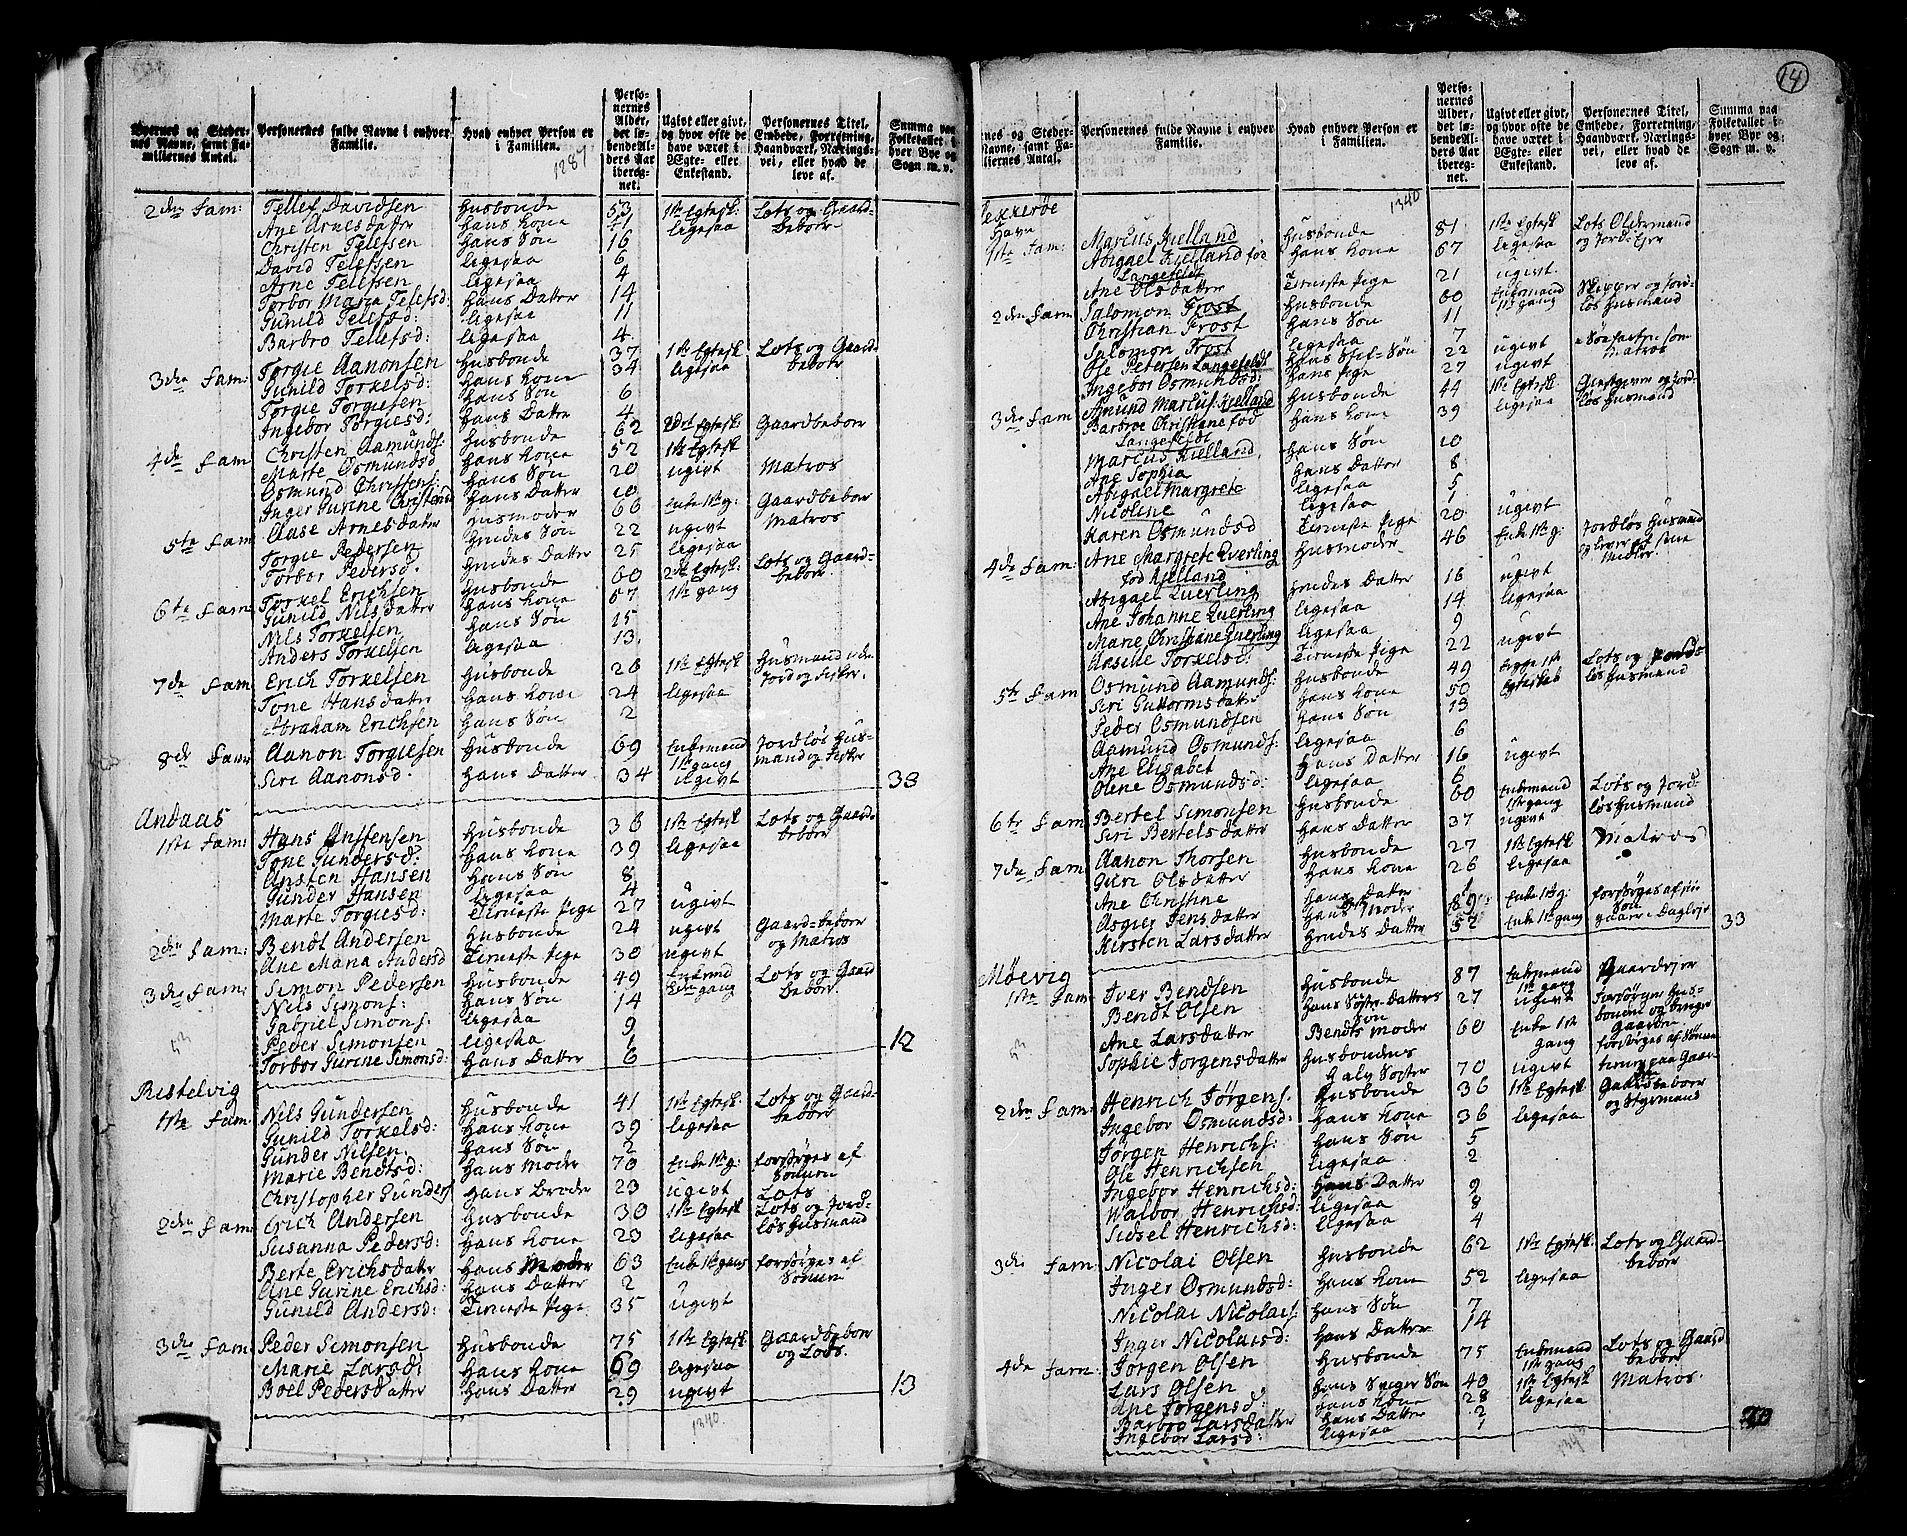 Byernes og Steder-
nes Navne, samt Fa-
miliernes Antal.
Personernes fulde Navne i enhver
Familie.
Hvad enhver Person er
i Familien.
1287
Perso-
nernes
Alder,
det lø-
bende Al-
ders Aar
iberegnet.
Ugivt eller givt,
og hvor ofte de
have været i
Ægte- eller
Enkestand.
Personernes Titel,
Embede, Forretning,
Haandværk, Nærings-
vei, eller hvad de
leve af.
Summa paa
Folketallet i
hver Bye og
Sogn m. v.
2den Fam: Tellef Davidsen Husbonde 53 1ste Egtesk: Lots og Gaard-
Ane Arnesdatter Hans Kone 41 ligesaa beboer
Christen Telefsen Hans Søn 16
David Telefsen ligesaa 6
Arne Telefsen ligesaa 4
Torbor Maria Telefsd: Hans Datter 14
Gunild Telefsd: ligesaa 11
Barbro Tellefsd: ligesaa 4
3die Fam: Torgie Aanonsen Husbonde 37 1ste Egtesk Lots og Gaard-
Gunild Torkelsd: Hans Kone 34 ligesaa beboer
Torgie Torgiesen Hans Søn 6
Ingebor Torgiesd: Hans Datter 4
4de Fam Christen Aamunds: Husbonde 62 2det Egtesk: Gaardbeboer
Marte Osmundsd Hans Kone 52 1ste Egtesk
Osmund Christens: Hans Søn 20 ugivt Matros
Inger Gurine Christensd Hans Datter 10
5te Fam Aase Arnesdatter Husmoder 66 Enke 1ste g: Gaardbeboer
Torgie Pedersen Hendes Søn 22 ugivt Matros
Torbor Pedersd. Hendes Datter 25 ligesaa
6te Fam Torkel Erichsen Husbonde 60 2det Egtesk: Lots og Gaard-
Gunild Nilsdatter Hans Kone 57 1ste gang beboer
Nils Torkelsen Hans Søn 15
Anders Torkelsen ligesaa 13
7de Fam Erich Torkelsen Husbonde 26 1ste Egtesk Husmand uden
Tone Hansdatter Hans Kone 24 ligesaa Jord og Fisker
Abraham Erichsen Hans Søn 2
8de Fam Aanon Torgiesen Husbonde 69 Enkemand Jordløs Hus-
1ste gang mand og Fisker
Siri Aanonsd. Hans Datter 34 ugivt 38
Andaas
1ste Fam: Hans Anstensen Husbonde 36 1ste Egtesk Lots og Gaard-
Tone Gundersd: Hans Kone 39 ligesaa beboer
Ansten Hansen Hans Søn 8
Gunder Hansen ligesaa 4
Marte Torgiesd: Tieneste Pige 27 ugivt
2den Fam: Bendt Andersen Husbonde 24 ugivt Gaard-beboer
Ane Maria Andersd Tieneste Pige 30 ugivt og Matros
3die Fam: Simon Pedersen Husbonde 49 Enkemd Lots og Gaard
Nils Simons: Hans Søn 14 2den gang beboer
Gabriel Simons: ligesaa 9
53 Peder Simonsen ligesaa 1 12
Torbor Gurine Simonsd: Hans Datter 6
Ristelvig
1ste Fam Nils Gundersen Husbonde 41 1ste Egtesk: Lots og Gaard-
Gunild Torkelsd: Hans Kone 39 ligesaa beboer
Gunder Nilsen Hans Søn 2
Marie Bendtsd: Hans Moder 70 Enke 1ste g: forsørges af
Sønnen
Christopher Gunders Hans Broder 23 ugivt Lots
2den Fam: Erich Andersen Husbonde 30 1ste Egtesk Lots og Jord-
Susanna Pedersd: Hans Kone 23 ligesaa løs Husmand
Berte Erichsdatter Hans Moder 63 Enke 1ste gang forsørges af
Ane Gurine Erichsd: Hans Datter 2 Sønnen
Gunild Andersd: Tieneste Pige 35 ugivt
3die Fam Peder Simonsen Husbonde 75 1ste Egtesk Gaardbeboer
Marie Larsd: Hans Kone 69 ligesaa og Lods.
Boel Pedersdatter Hans Datter 29 ugivt 13
1340
14
nes og Steder-
Navne, samt Fa-
iliernes Antal.
Personernes fulde Navne i enhver
Familie.
Hvad enhver Person er
i Familien.
1340
Perso-
nernes
Alder,
det lø-
bende Al-
ders Aar
iberegnet.
Ugivt eller givt,
og hvor ofte de
have været i
Ægte- eller
Enkestand.
Personernes Titel,
Embede, Forretning,
Haandværk, Nærings-
vei, eller hvad de
leve af.
Summa paa
Folketallet i
hver Bye og
Sogn m. v.
Flekkerøe
Havn
1ste Fam: Marcus Kielland Husbonde 81 1ste Egtesk Lots Oldermand
Abigael Kielland fød Hans Kone 67 ligesaa og Jord-Ejer
Langefeldt
Ane Olsdatter Tieneste Pige 21 ugivt.
2den Fam Salomon Frost Husbonde 60 Enkemand Skipper og Jord-
Christian Frost Hans Søn 11 1ste gang løs Husmand
Salomon Frost ligesaa 7
Ole Petersen Langefeldt Hans Stif-Søn 22 ugivt Søefarten som
Ingebor Osmundsd: Hans Pige 27 ugivt Matros
3die Fam Amund Marcus. Kielland Husbonde 44 1ste Egtesk: Giestgiver og Jord-
Barbroe Christiane fød Hans Kone 39 ligesaa løs Husmand
Langefeldt
Marcus Kielland Hans Søn 10
Ane Sophia Hans Datter 8
Abigael Margrete ligesaa 5
Nicoline ligesaa 1
Karen Osmundsd Tieneste Pige 20 ugivt
4de Fam: Ane Margrete Qverling Husmoder 46 Enke 1ste g: Jordløs Husmand
fød Kielland og lever af sine
Midler.
Abigael Qverling Hendes Datter 16 ugivt
Ane Johanne Qverling ligesaa 14 ligesaa
Marie Christiane Qverling ligesaa 9
Aaselle Torkelsd: Tieneste Pige 22 ugivt
5te Fam Osmund Aamunds: Husbonde 49 begge 1ste Lots og Jord-
Siri Guttormsdatter Hans Kone 50 Egteskab løs Husmand
Peder Osmundsen Hans Søn 13
Aamund Osmunds: ligesaa 6
Ane Elisabet Hans Datter 16 ugivt
Olene Osmundsd: ligesaa 6
6te Fam Bertel Simonsen Husbonde 60 Enkemand Lots og Jord-
1ste gang løs Husmand
Siri Bertelsdatter Hans Datter 37 ugivt
7de Fam Aanon Thorsen Husbonde 27 1ste Egtesk Matros
Guri Olsdatter Hans Kone 26 ligesaa
Ane Christine Hans Datter 1
Asgier Jensdatter Hans Moder 89 Enke 1ste g: forsørges af sin
Søn
Kirsten Larsdatter Hendes Datter 52 Enke 1ste gang gaaer i Dagleje 33
Møevig
1ste Fam Iver Bendsen Husbonde 87 Enkemand Gaardejer
1ste gang
Bendt Olsen Hans Søster-Datters 27 ugivt forsørger Hus-
Søn bonden og bruger
Ane Larsdatter Bendts Moder 60 Enke 1ste Gaarden
53 gang forsørges af Sønnen
Sophie Jorgensdatter Husbondens
Halv Søster 70 ugivt tiener paa Gaar-
den
2den Fam: Henrich Jørgens. Husbonde 36 1ste Egtesk Gaardbeboer
Ingebor Osmundsd: Hans Kone 36 ligesaa og Styrmand
Jørgen Henrichs: Hans Søn 5
Ole Henrichsen ligesaa 2
Ingebor Henrichsd: Hans Datter 9
Walbor Henrichsd: ligesaa 8
Sidsel Henrichsd: ligesaa 4
3die Fam: Nicolai Olsen Husbonde 62 1ste Egtesk: Lots og Gaard-
Inger Osmundsd: Hans Kone 52 ligesaa beboer
Nicolai Nicolais: Hans Søn 7
Inger Nicolaisd: Hans Datter 14
4de Fam: Jorgen Olsen Husbonde 75 Enkemand Lots og Gaard-
1ste gang beboer
Lars Olsen Hans Sviger Søn 40 1ste Egtesk Matros.
Ane Jorgensd: Hans Kone 28 ligesaa
Barbro Larsdatter Hans Datter 2
Ingebor Larsd: ligesaa 1 20